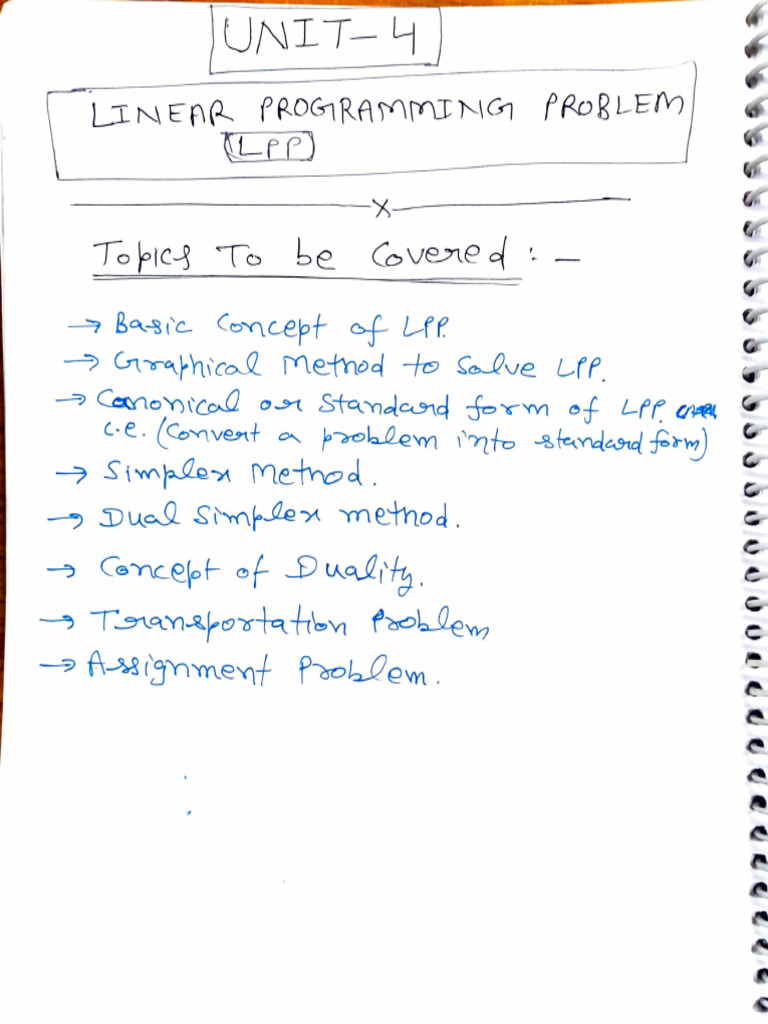 UNIT-4
LINEAR PROGRAMMING PROBLEM
(LPP)
x
Topics To be Covered : -
→ Basic Concept of LPP.
→ Graphical Method to Solve LPP.
→ Canonical or Standard form of LPP.
i.e. (Convert a problem into standard form)
→ Simplex Method.
→ Dual Simplex method.
→ Concept of Duality.
→ Transportation Problem
→ Assignment Problem.